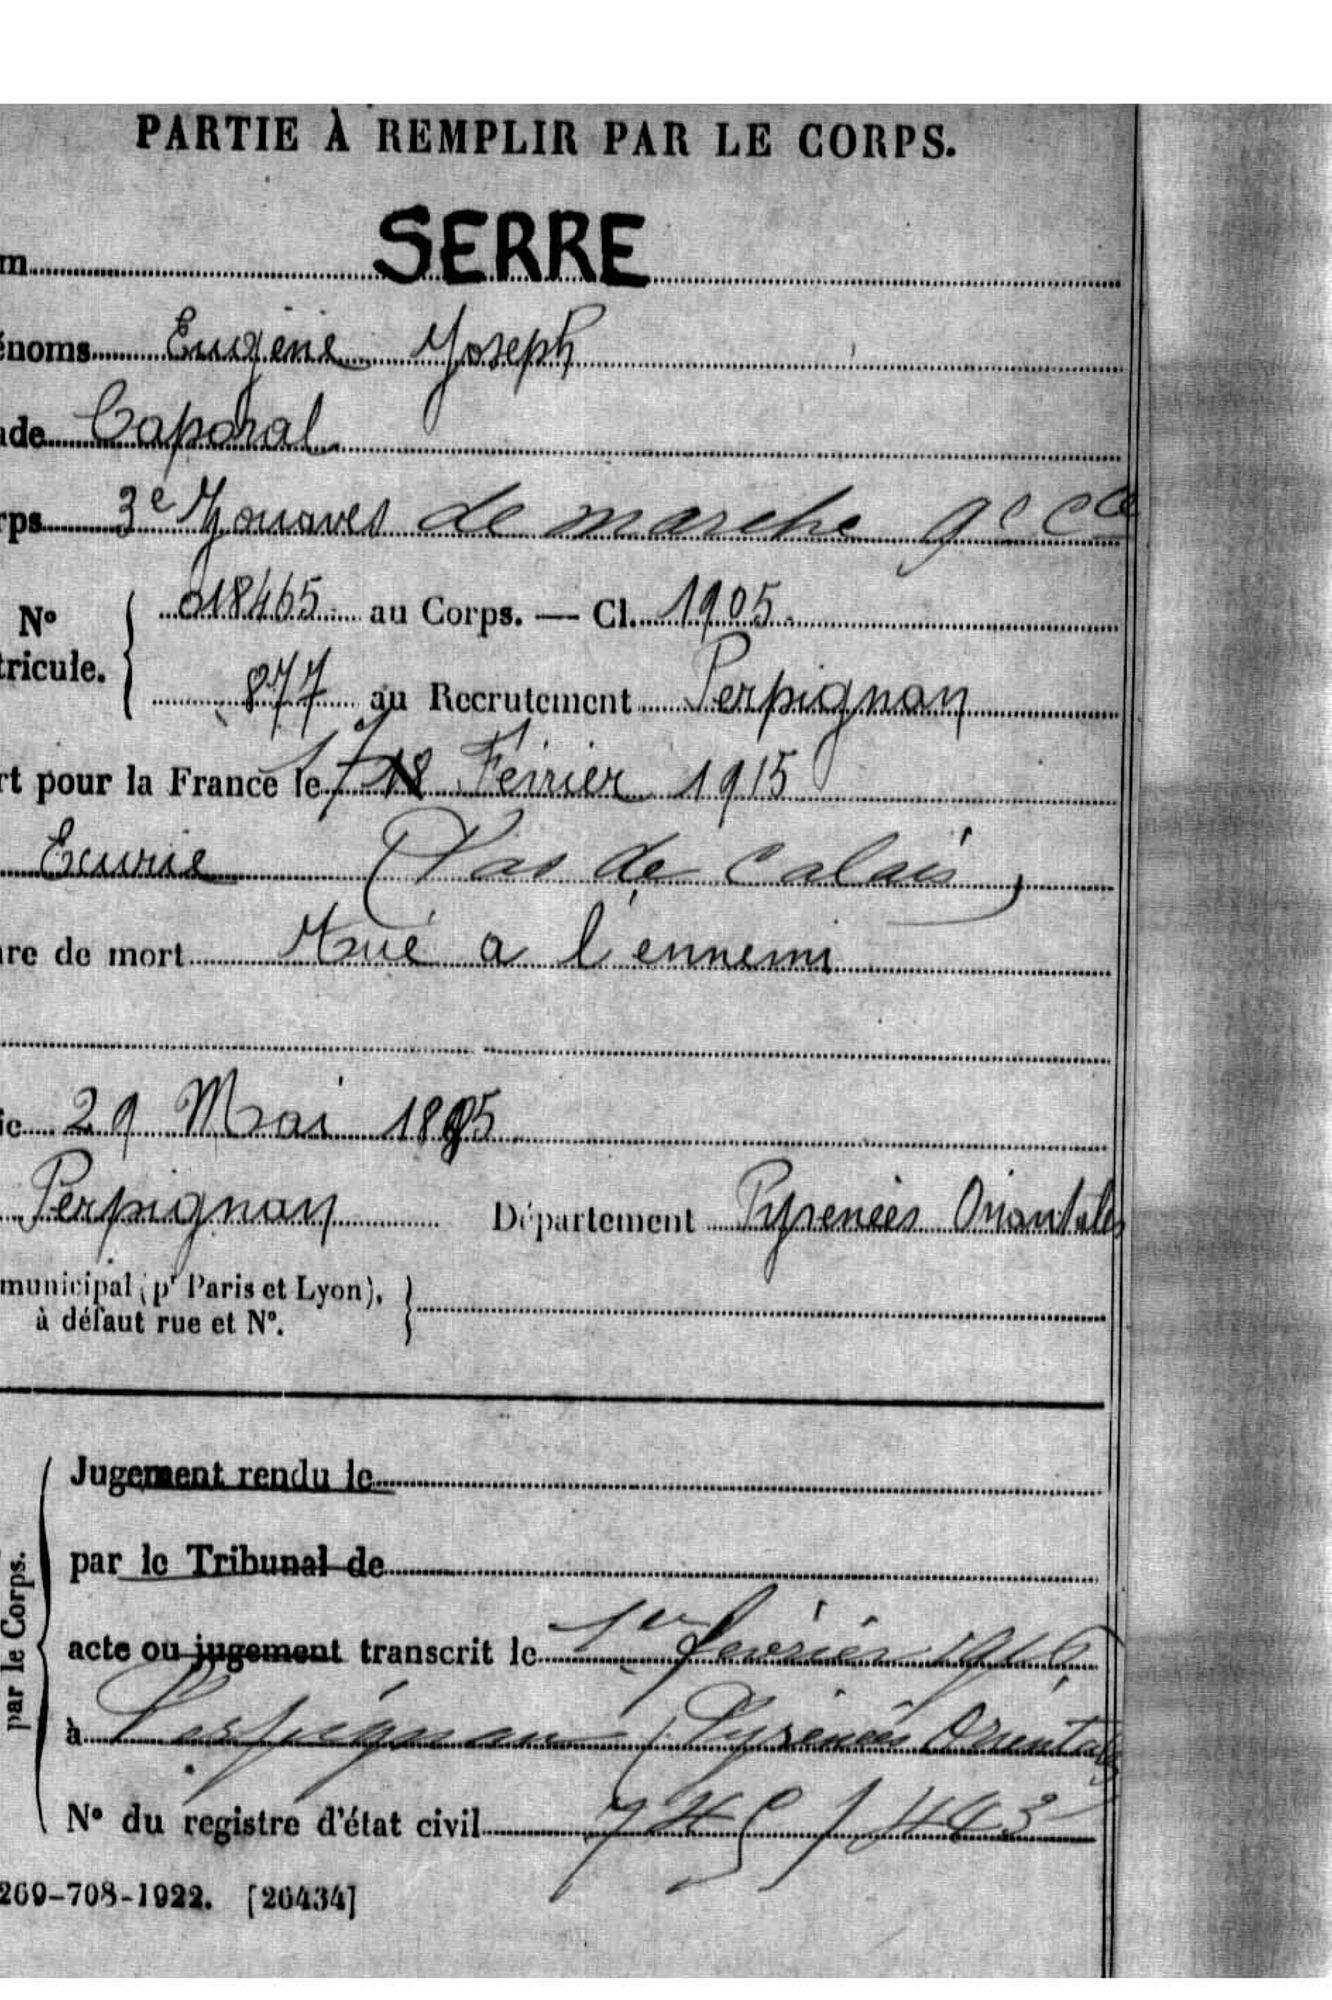 PARTIE À REMPLIR PAR LE CORPS.
m SERRE
énoms Eugène Joseph
ade Caporal
rps 3e Zouaves de marche 9e Cie
N° 018465 au Corps. — Cl. 1905
tricule. 877 au Recrutement Perpignan
rt pour la France le 17 18 Février 1915
Ecurie (Pas de Calais)
nre de mort Tué a l'ennemi
29 Mai 1885
Perpignan Département Pyrenées Orientales
municipal (pr Paris et Lyon),
à défaut rue et N°.
par le Corps.
Jugement rendu le
par le Tribunal de
acte ou jugement transcrit le 1er février 1916
à Perpignan (Pyrénées Orientales
N° du registre d'état civil 745/443
269-708-1922. [26434]